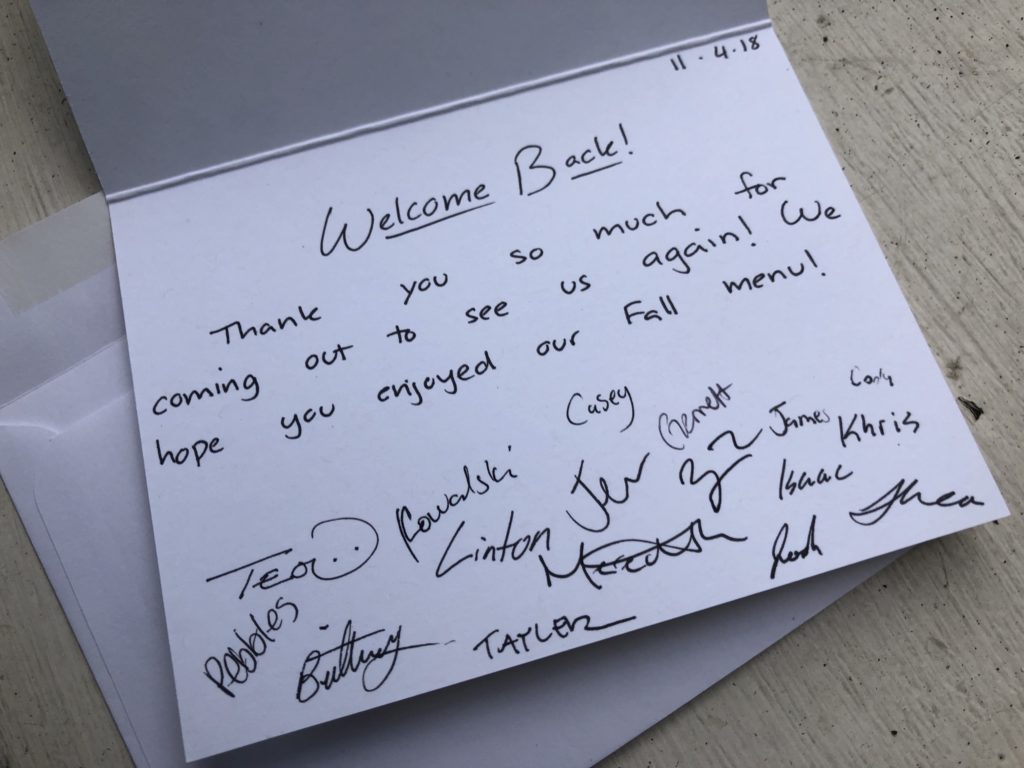 11 . 4 . 18
Welcome Back!
Thank you so much for
coming out to see us again! We
hope you enjoyed our Fall menu!
Casey
James
Khris
Kowalski
Linton
Jen
Isaac
Shea
Pebbles
Brittany
TAYLER